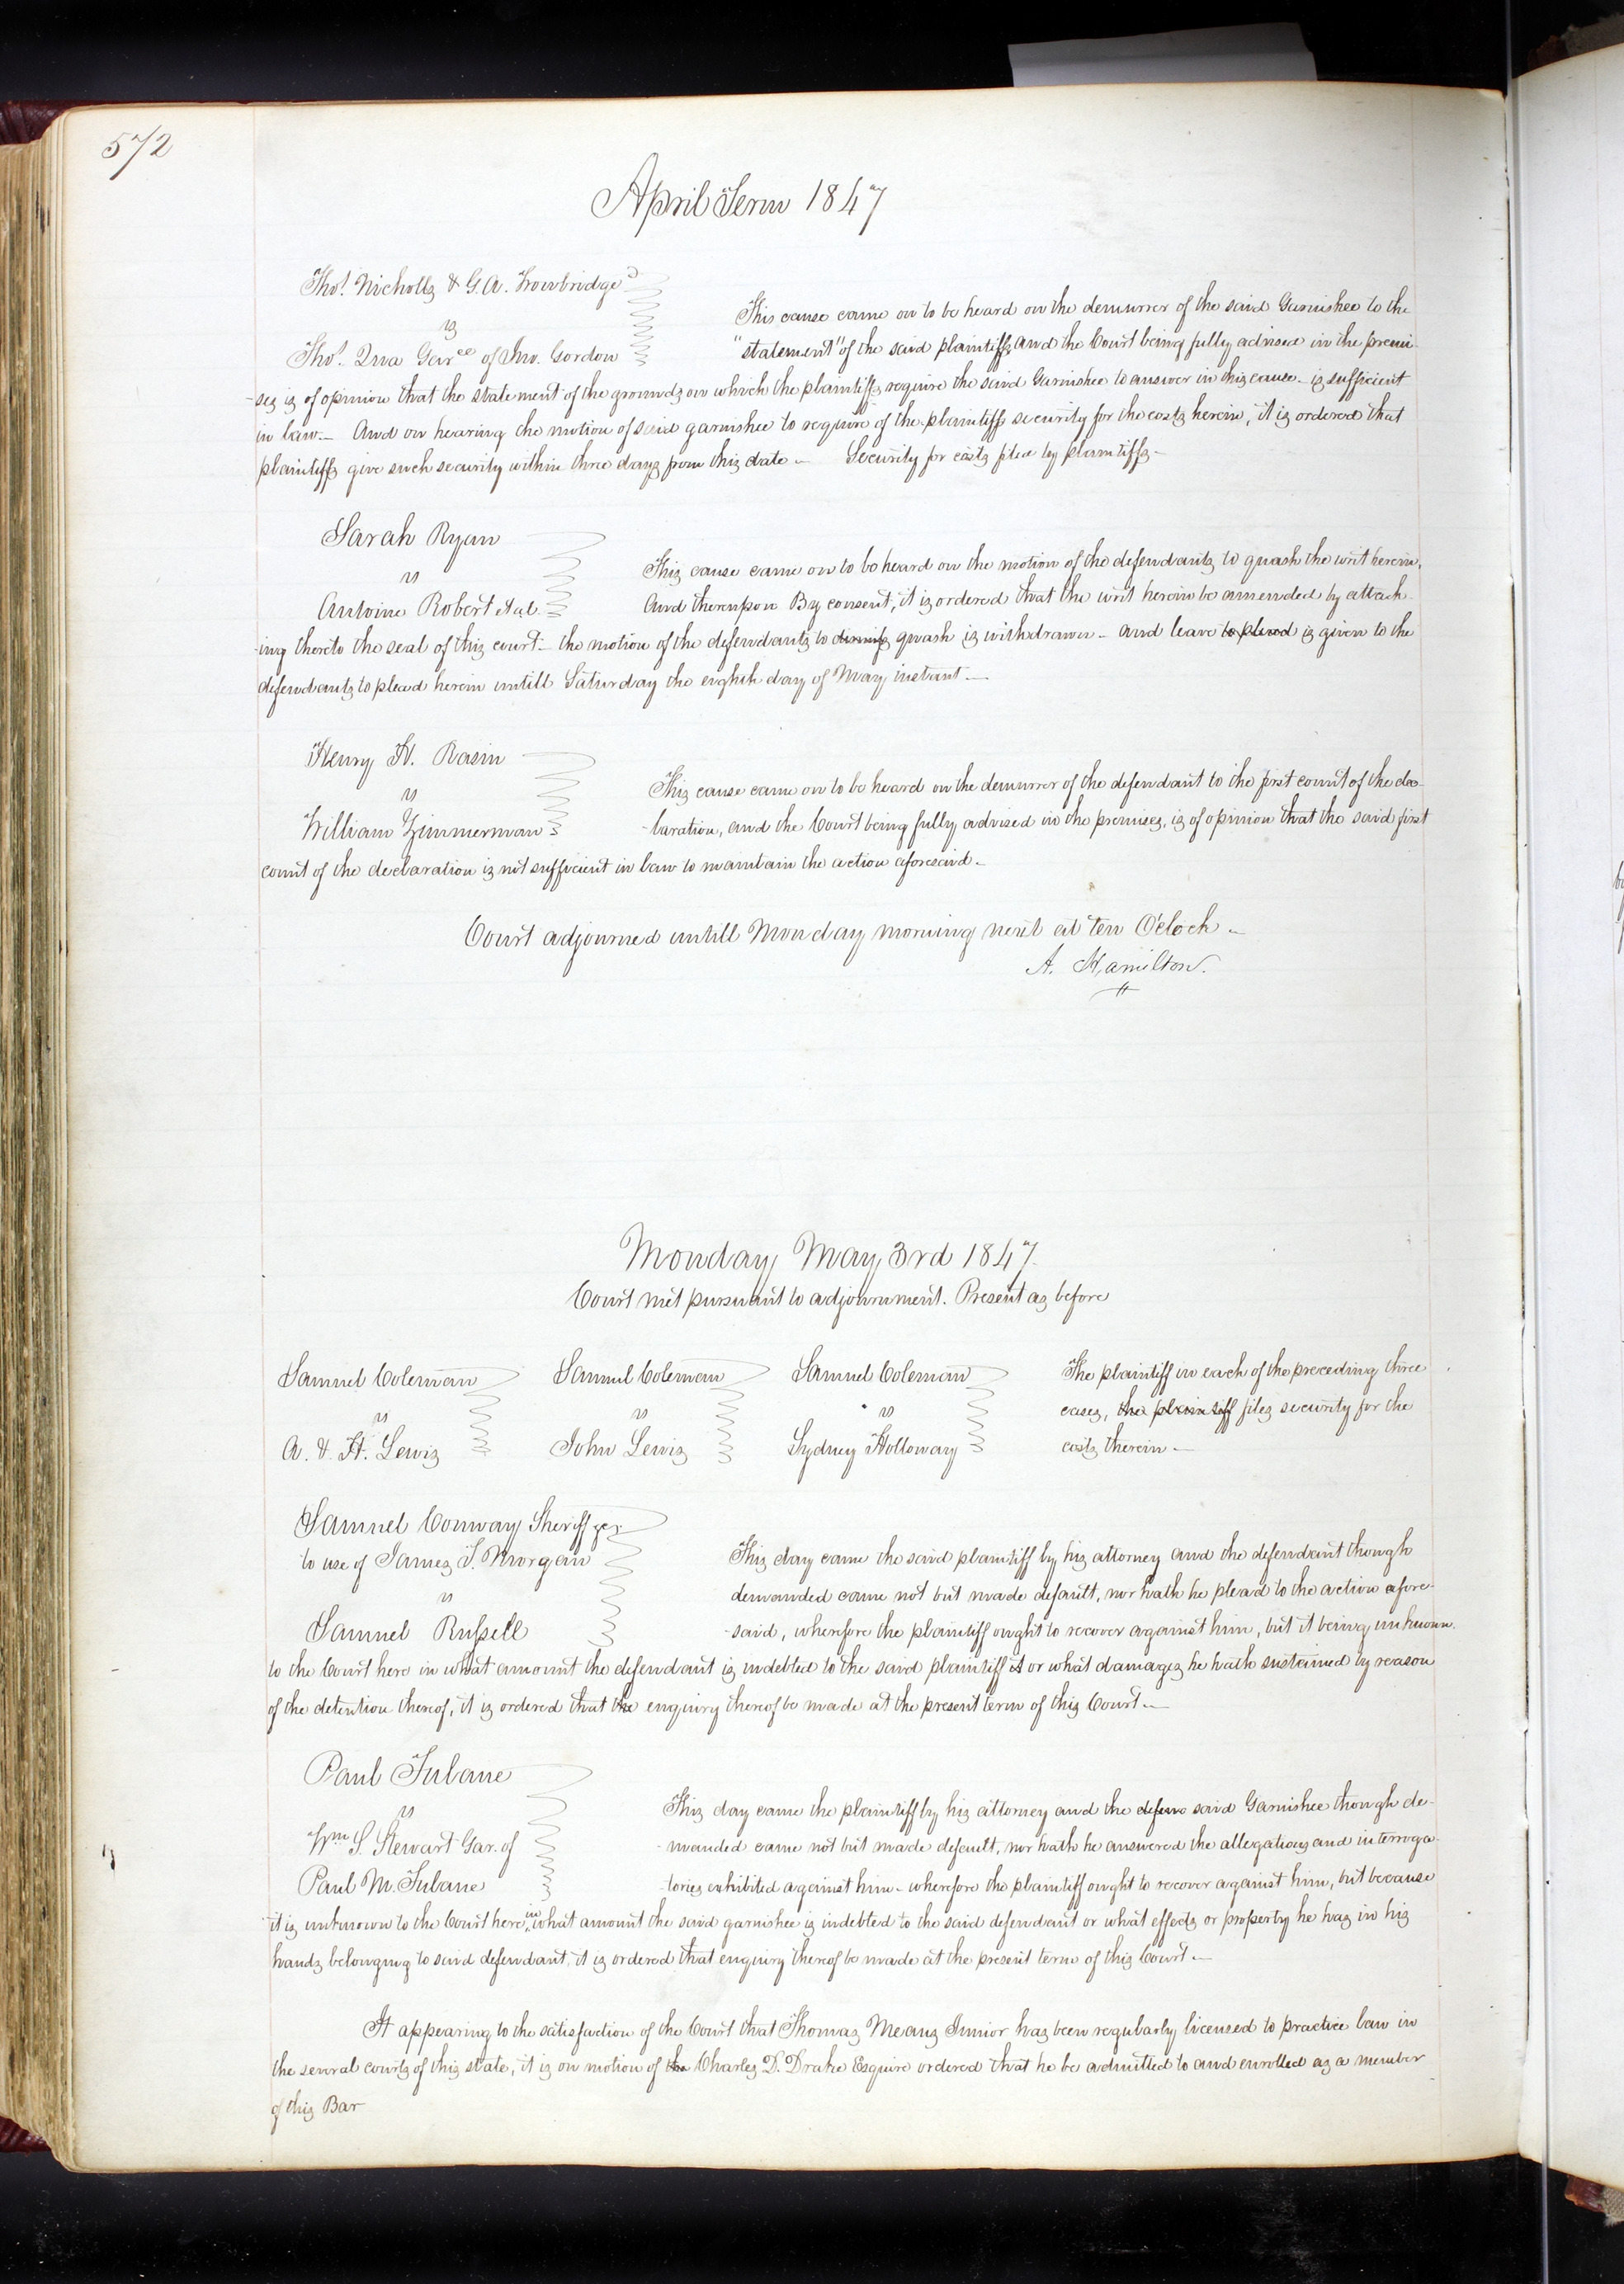 572
April Term 1847
Thos. Nicholls & G. A. Trowbridge
vs
Thos. Qua Garee of Jno. Gordon
This cause came on to be heard on the demurrer of the said Garnishee to the
"statement" of the said plaintiffs, and the Court being fully advised in the premi-
-ses is of opinion that the statement of the grounds on which the plaintiffs require the said Garnishee to answer in this cause - is sufficient
in law. - And on hearing the motion of said garnishee to require of the plaintiffs security for the costs herein, it is ordered that
plaintiffs give such security within three days from this date - Security for costs filed by plaintiffs -
Sarah Ryan
vs
Antoine Robert et al.
This cause came on to be heard on the motion of the defendants to quash the writ herein,
And thereupon By consent, it is ordered that the writ herein be amended by attach-
-ing thereto the seal of this court - the motion of the defendants to dismiss quash is withdrawn - and leave to plead is given to the
defendants to plead herein untill Saturday the eighth day of May instant. -
Henry H. Rasin
vs
William Zimmerman
This cause came on to be heard on the demurrer of the defendant to the first count of the dec-
-laration, and the Court being fully advised in the premises, is of opinion that the said first
count of the declaration is not sufficient in law to maintain the action aforesaid. -
Court adjourned untill Monday morning next at ten O'clock -
A. Hamilton.
Monday May 3rd 1847.
Court met pursuant to adjournment. Present as before
Samuel Coleman
vs
A. & H. Lewis
Samuel Coleman
vs
John Lewis
Samuel Coleman
vs
Sydney Holloway
The plaintiff in each of the preceding three
cases, the plaintiff files security for the
costs therein -
Samuel Conway Sheriff &c
to use of James S. Morgan
vs
Samuel Russell
This day came the said plaintiff by his attorney and the defendant though
demanded came not but made default, nor hath he plead to the action afore-
-said, wherefore the plaintiff ought to recover against him, but it being unknown
to the Court here in what amount the defendant is indebted to the said plaintiff or what damages he hath sustained by reason
of the detention thereof, it is ordered that the enquiry thereof be made at the present term of this Court. -
Paul Tulane
vs
Wm. S. Stewart Gar. of
Paul M. Tulane
This day came the plaintiff by his attorney and the defen said Garnishee though de-
-manded came not but made default, nor hath he answered the allegations and interroga-
-tories exhibited against him - wherefore the plaintiff ought to recover against him, but because
it is unknown to the Court here in what amount the said garnishee is indebted to the said defendant or what effects or property he has in his
hands belonging to said defendant, it is ordered that enquiry thereof be made at the present term of this Court. -
It appearing to the satisfaction of the Court that Thomas Means Junior has been regularly licensed to practice law in
the several courts of this state, it is on motion of the Charles D. Drake Esquire ordered that he be admitted to and enrolled as a member
of this Bar